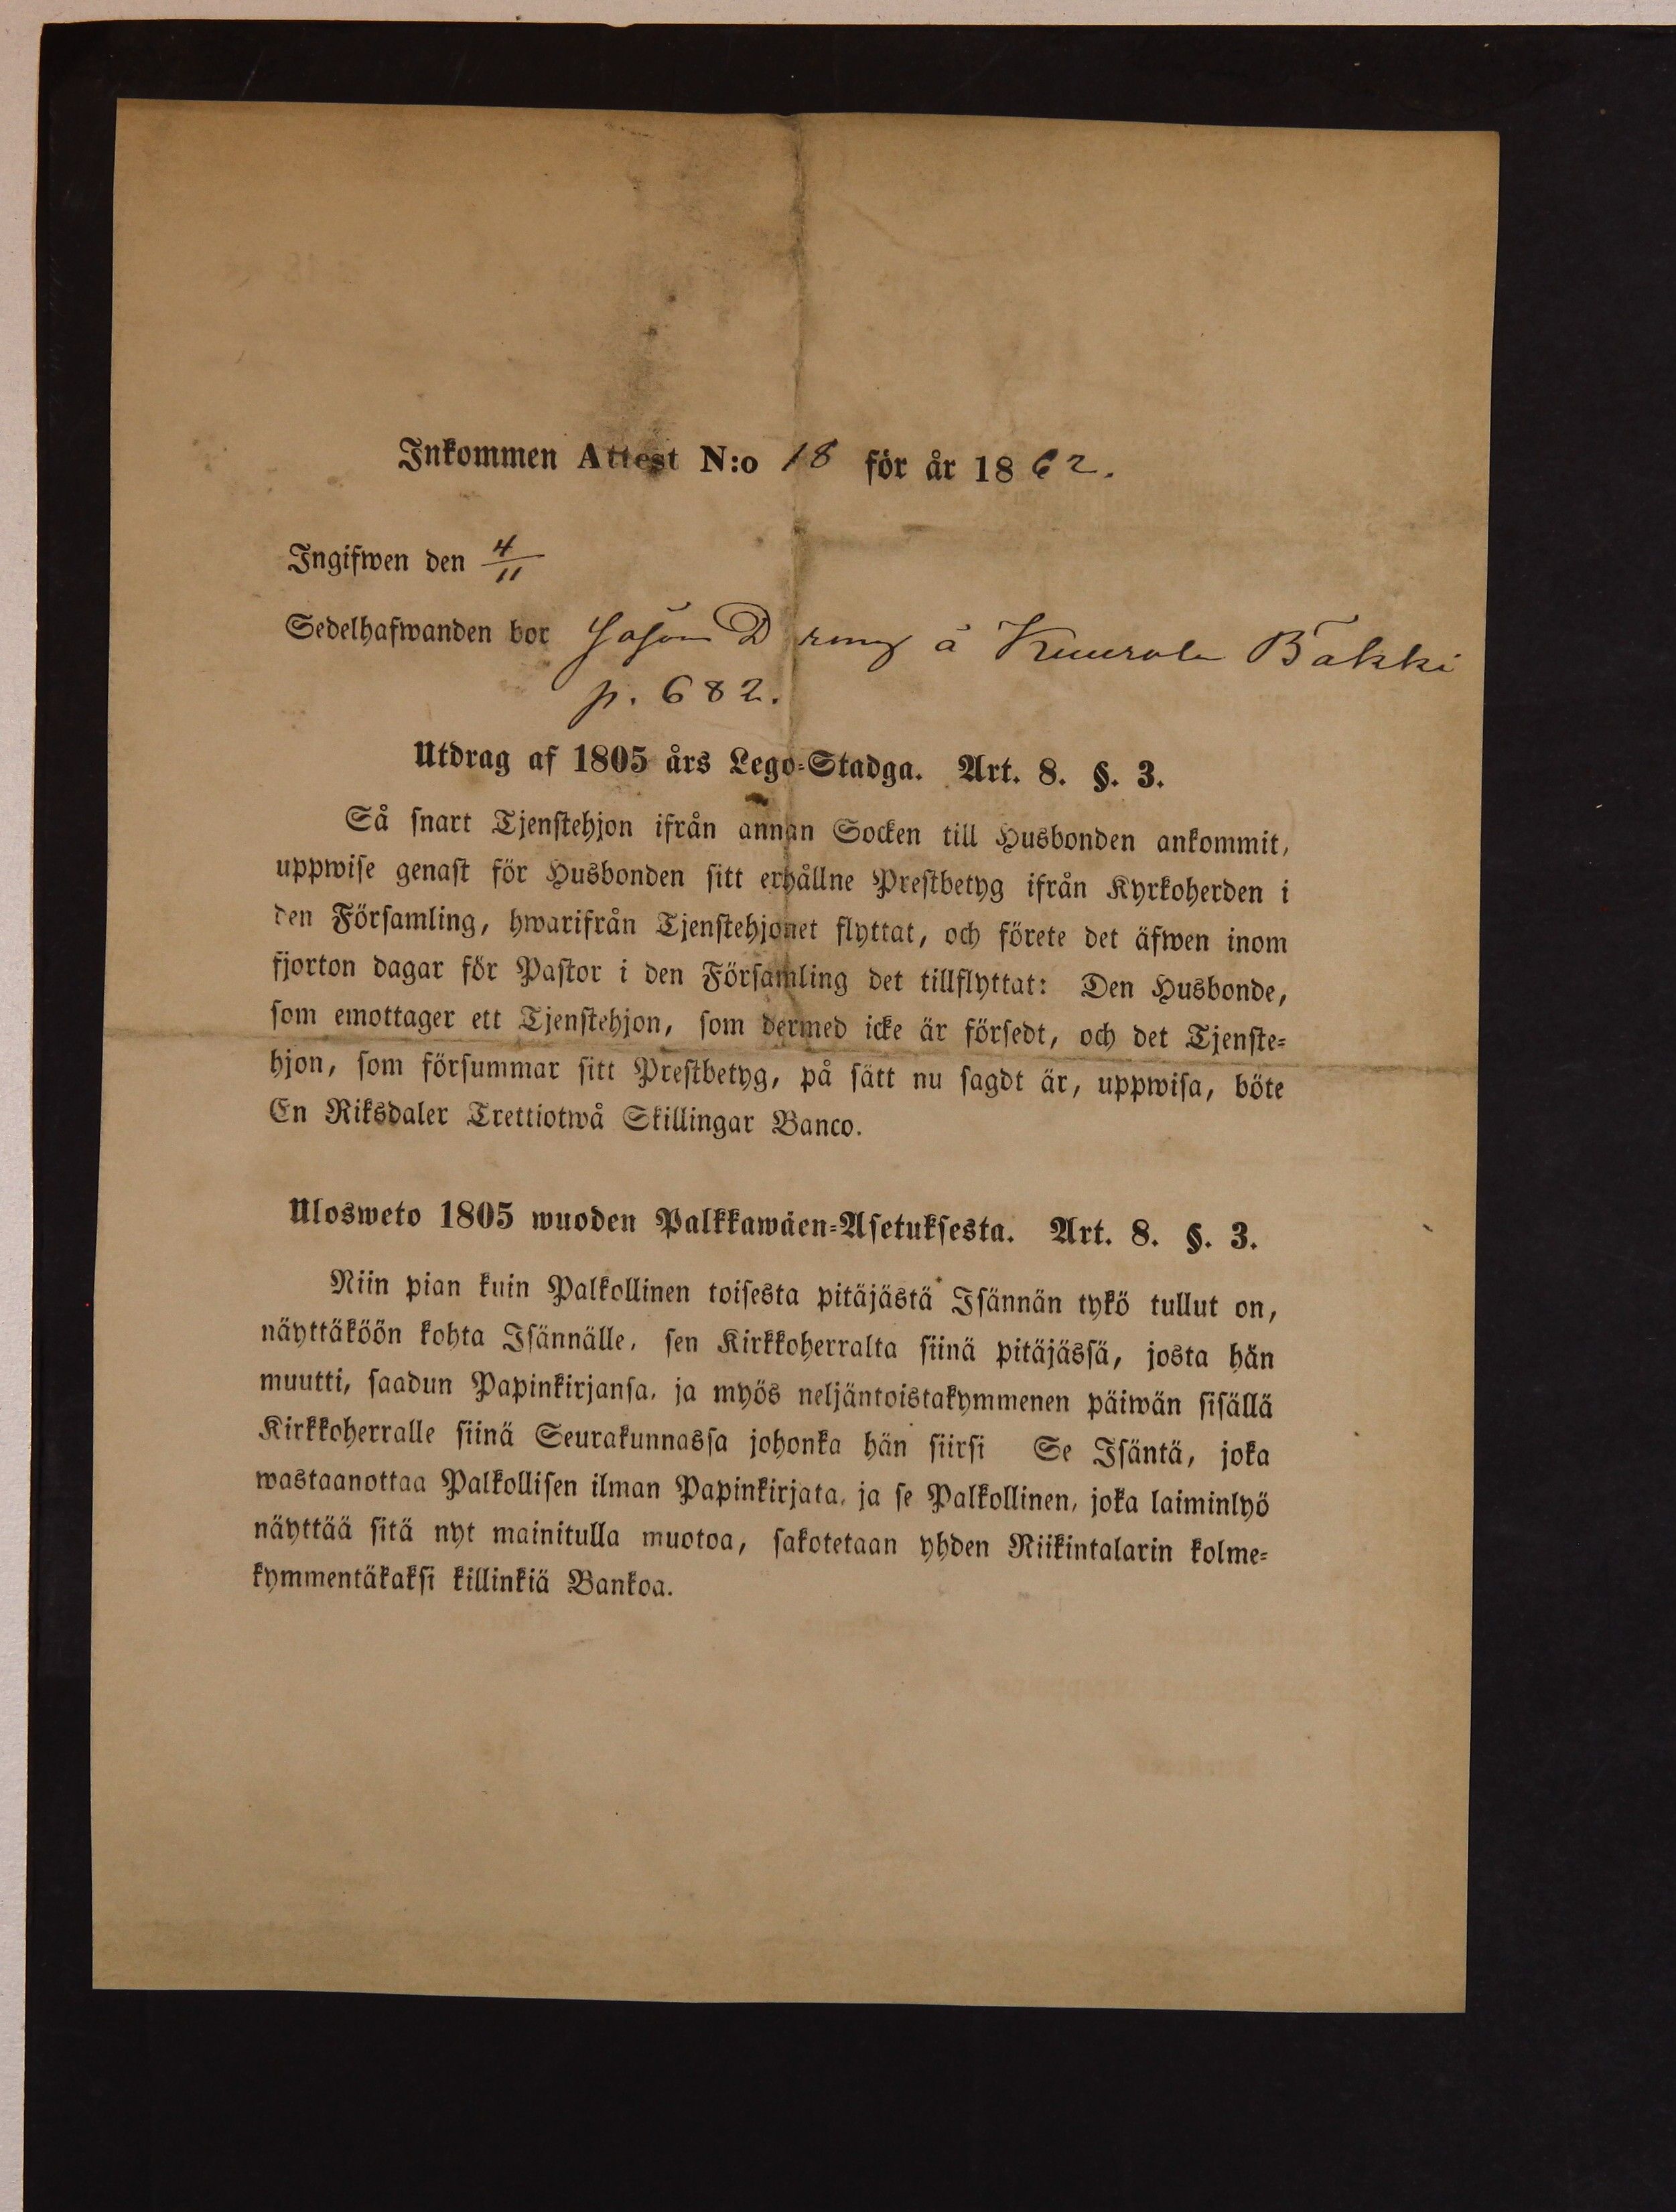 Inkommen Attest N:o 18 för år 1862.
Ingifwen den 4/11
Sedelhafwanden bor såsom Dreng å Kuurola Bäkki
p. 682.
Utdrag af 1805 års Lego-Stadga. Art. 8. §. 3.
Så snart Tjenstehjon ifrån annan Socken till Husbonden ankommit,
uppwise genast för Husbonden sitt erhållne Prestbetyg ifrån Kyrkoherden i
den Församling, hwarifrån Tjenstehjonet flyttat, och förete det äfwen inom
fjorton dagar för Pastor i den Församling det tillflyttat: Den Husbonde,
som emottager ett Tjenstehjon, som dermed icke är försedt, och det Tjenste-
hjon, som försummar sitt Prestbetyg, på sätt nu sagdt är, uppwisa, böte
En Riksdaler Trettiotwå Skillingar Banco.
Ulosweto 1805 wuoden Palkkawäen-Asetuksesta. Art. 8. §. 3.
Niin pian kuin Palkollinen toisesta pitäjästä Isännän tykö tullut on,
näyttäköön kohta Isännälle, sen Kirkkoherralta siinä pitäjässä, josta hän
muutti, saadun Papinkirjansa, ja myös neljäntoistakymmenen päiwän sisällä
Kirkkoherralle siinä Seurakunnassa johonka hän siirsi Se Isäntä, joka
wastaanottaa Palkollisen ilman Papinkirjata, ja se Palkollinen, joka laiminlyö
näyttää sitä nyt mainitulla muotoa, sakotetaan yhden Riikintalarin kolme-
kymmentäkaksi killinkiä Bankoa.